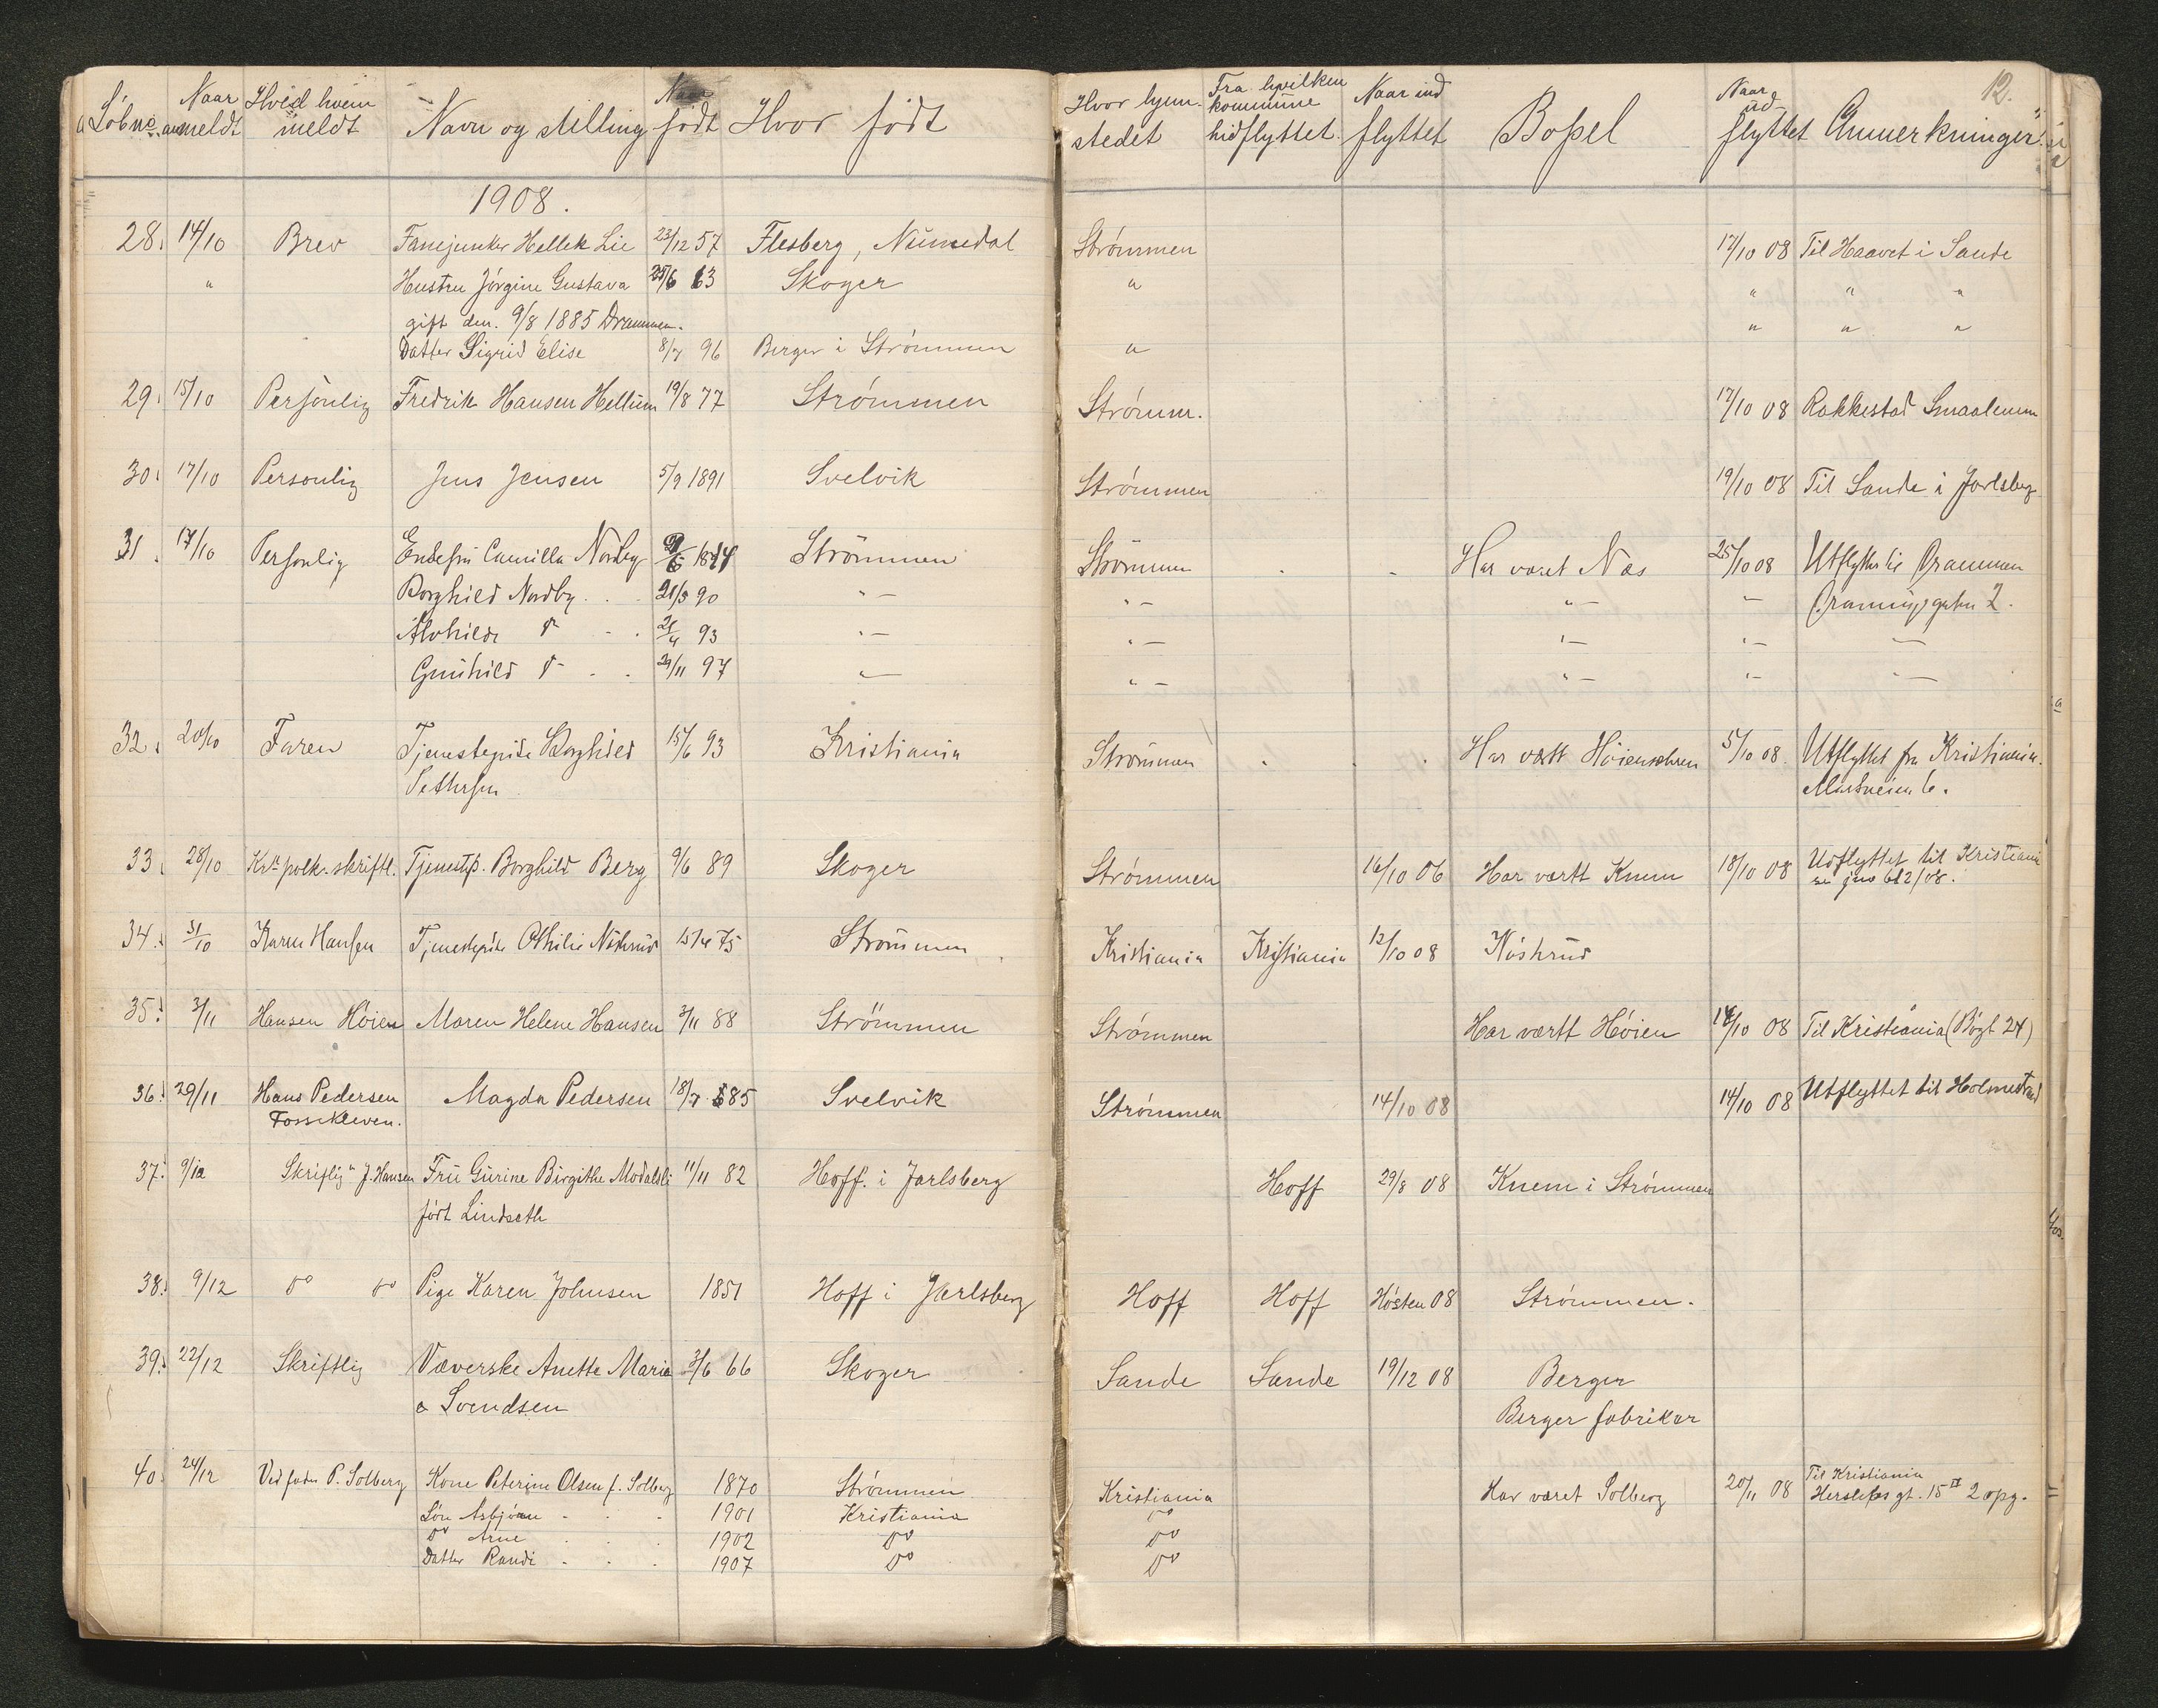 Löbno. Naar anmeldt Hved hvem meldt Navn og stilling Naar födt Hvor födt Hvor hjem- stedet Fra hvilken kommune hidflyttet. Naar ind flyttet Bopel Naar ud- flyttet Anmerkninger 12.
1908.
28. 14/10 Brev Fanejunker Hellek Lie 23/12 57 Flesberg, Numedal Strömmen 17/10 08 Til Haavet i Sande
" Hustru Jörgine Gustava 25/6 63 Skoger " " " "
gift den. 9/8 1885 Drammen. " " "
Datter Sigrid Elise 8/7 96 Berger i Strömmen "
29. 15/10 Personlig Fredrik Hansen Hellum 19/8 77 Strömmen Strömm. 17/10 08 Rakkestad Smaalenene
30. 17/10 Personlig Jens Jensen 5/9 1891 Svelvik Strömmen 19/10 08 Til Sande i Jarlsberg
31. 17/10 Personlig Enkefru Camilla Nordby Strömmen Strömmen Har været Næs 25/10 08 Utflyttet til Drammen
Borghild Nordby . . 21/5 90 " - " - " - - gaten 2.
Alvhilde do - . 93 " - " - " - " - -
Gunhild do - . . 29/11 97 " - " - " - " - -
32. 20/10 Faren Tjenestepide Borghild 15/6 93 Kristiania Strömmen . . . Har vært 5/10 08. Utflyttet fra Kristiania.
Pethersen 6.
33. 28/10 Kr.a polk. skriftl. Tjenestp. Borghild Berg 9/6 89 Skoger Strömmen 16/10 06 Har værtt Knem 18/10 08 Udflyttet til Kristiania
se jno 612/08.
34. 31/10 Karen Hansen Tjenestepide Othilie Nöstrud 15/4 75 Strömmen . Kristiania Kristiania 12/10 08 Nöstrud
35. 3/11 Hansen Höien Maren Helene Hansen 3/11 88 Strömmen Strömmen Har værtt Höien 14/10 08 Til Kristiania (Bögt 24)
36. 29/11 Hans Pedersen Magda Pedersen 18/7 85 Svelvik Strömmen 14/10 08 14/10 08 Utflyttet til Holmestrand
Fossekleven.
37. 9/12 Skriftlig " J. Hansen Fru Gurine Birgithe Modalsli 11/11 82 Hoff. i Jarlsberg Hoff 29/8 08 Knem i Strömmen
född Lindseth
38. 9/12 do do Pige Karen Johnsen 1851 Hoff i Jarlsberg Hoff Hoff Hösten 08 Strömmen.
39. 22/12 Skriftlig Væverske Anette Marie 3/6 66 Skoger Sande Sande 19/12 08 Berger
Svendsen Berger fabriker
40. 24/12 Ved fader P. Solberg Kone Peterine Olsen f. Solberg 1870 Strömmen Kristiania Har været Solberg 20/11 08 Til Kristiania
Herslebs gt. 15 II 2 opg.
Sön Asbjörn - . - 1901 Kristiania do
do Arne . . . 1902 do do
Datter Randi - . . 1907 do do